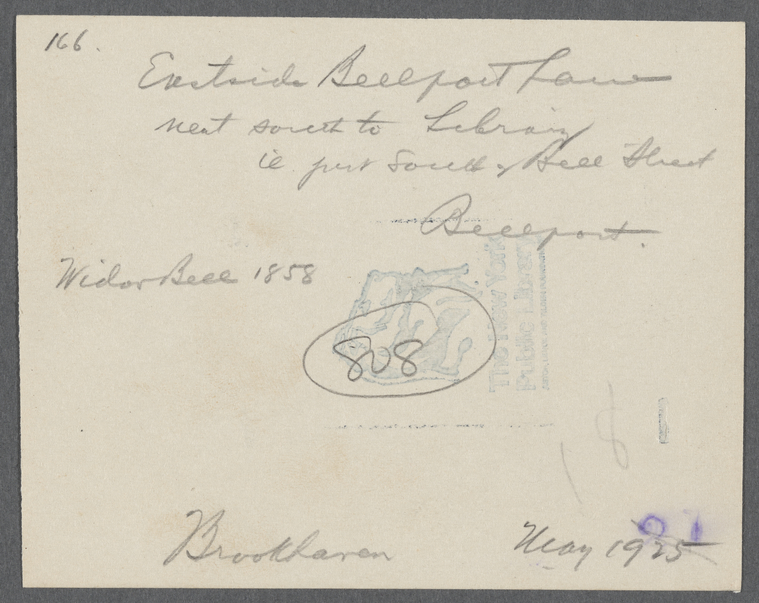 166.
Eastside Bellport Lane
next south to Library
ie. just South of Bell Street
Bellport.
Widow Bell 1858
808
The New York
Public Library
18
Brookhaven
May 1925